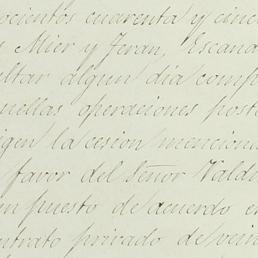 ocientos cuarenta y cinc
s Mier y Terán, Escana
ultar algun dia comp
uellas operaciones poste
igen la cesion menciona
favor del Señor Valdi
un puesto de acuerdo en
ntrato privado de vein